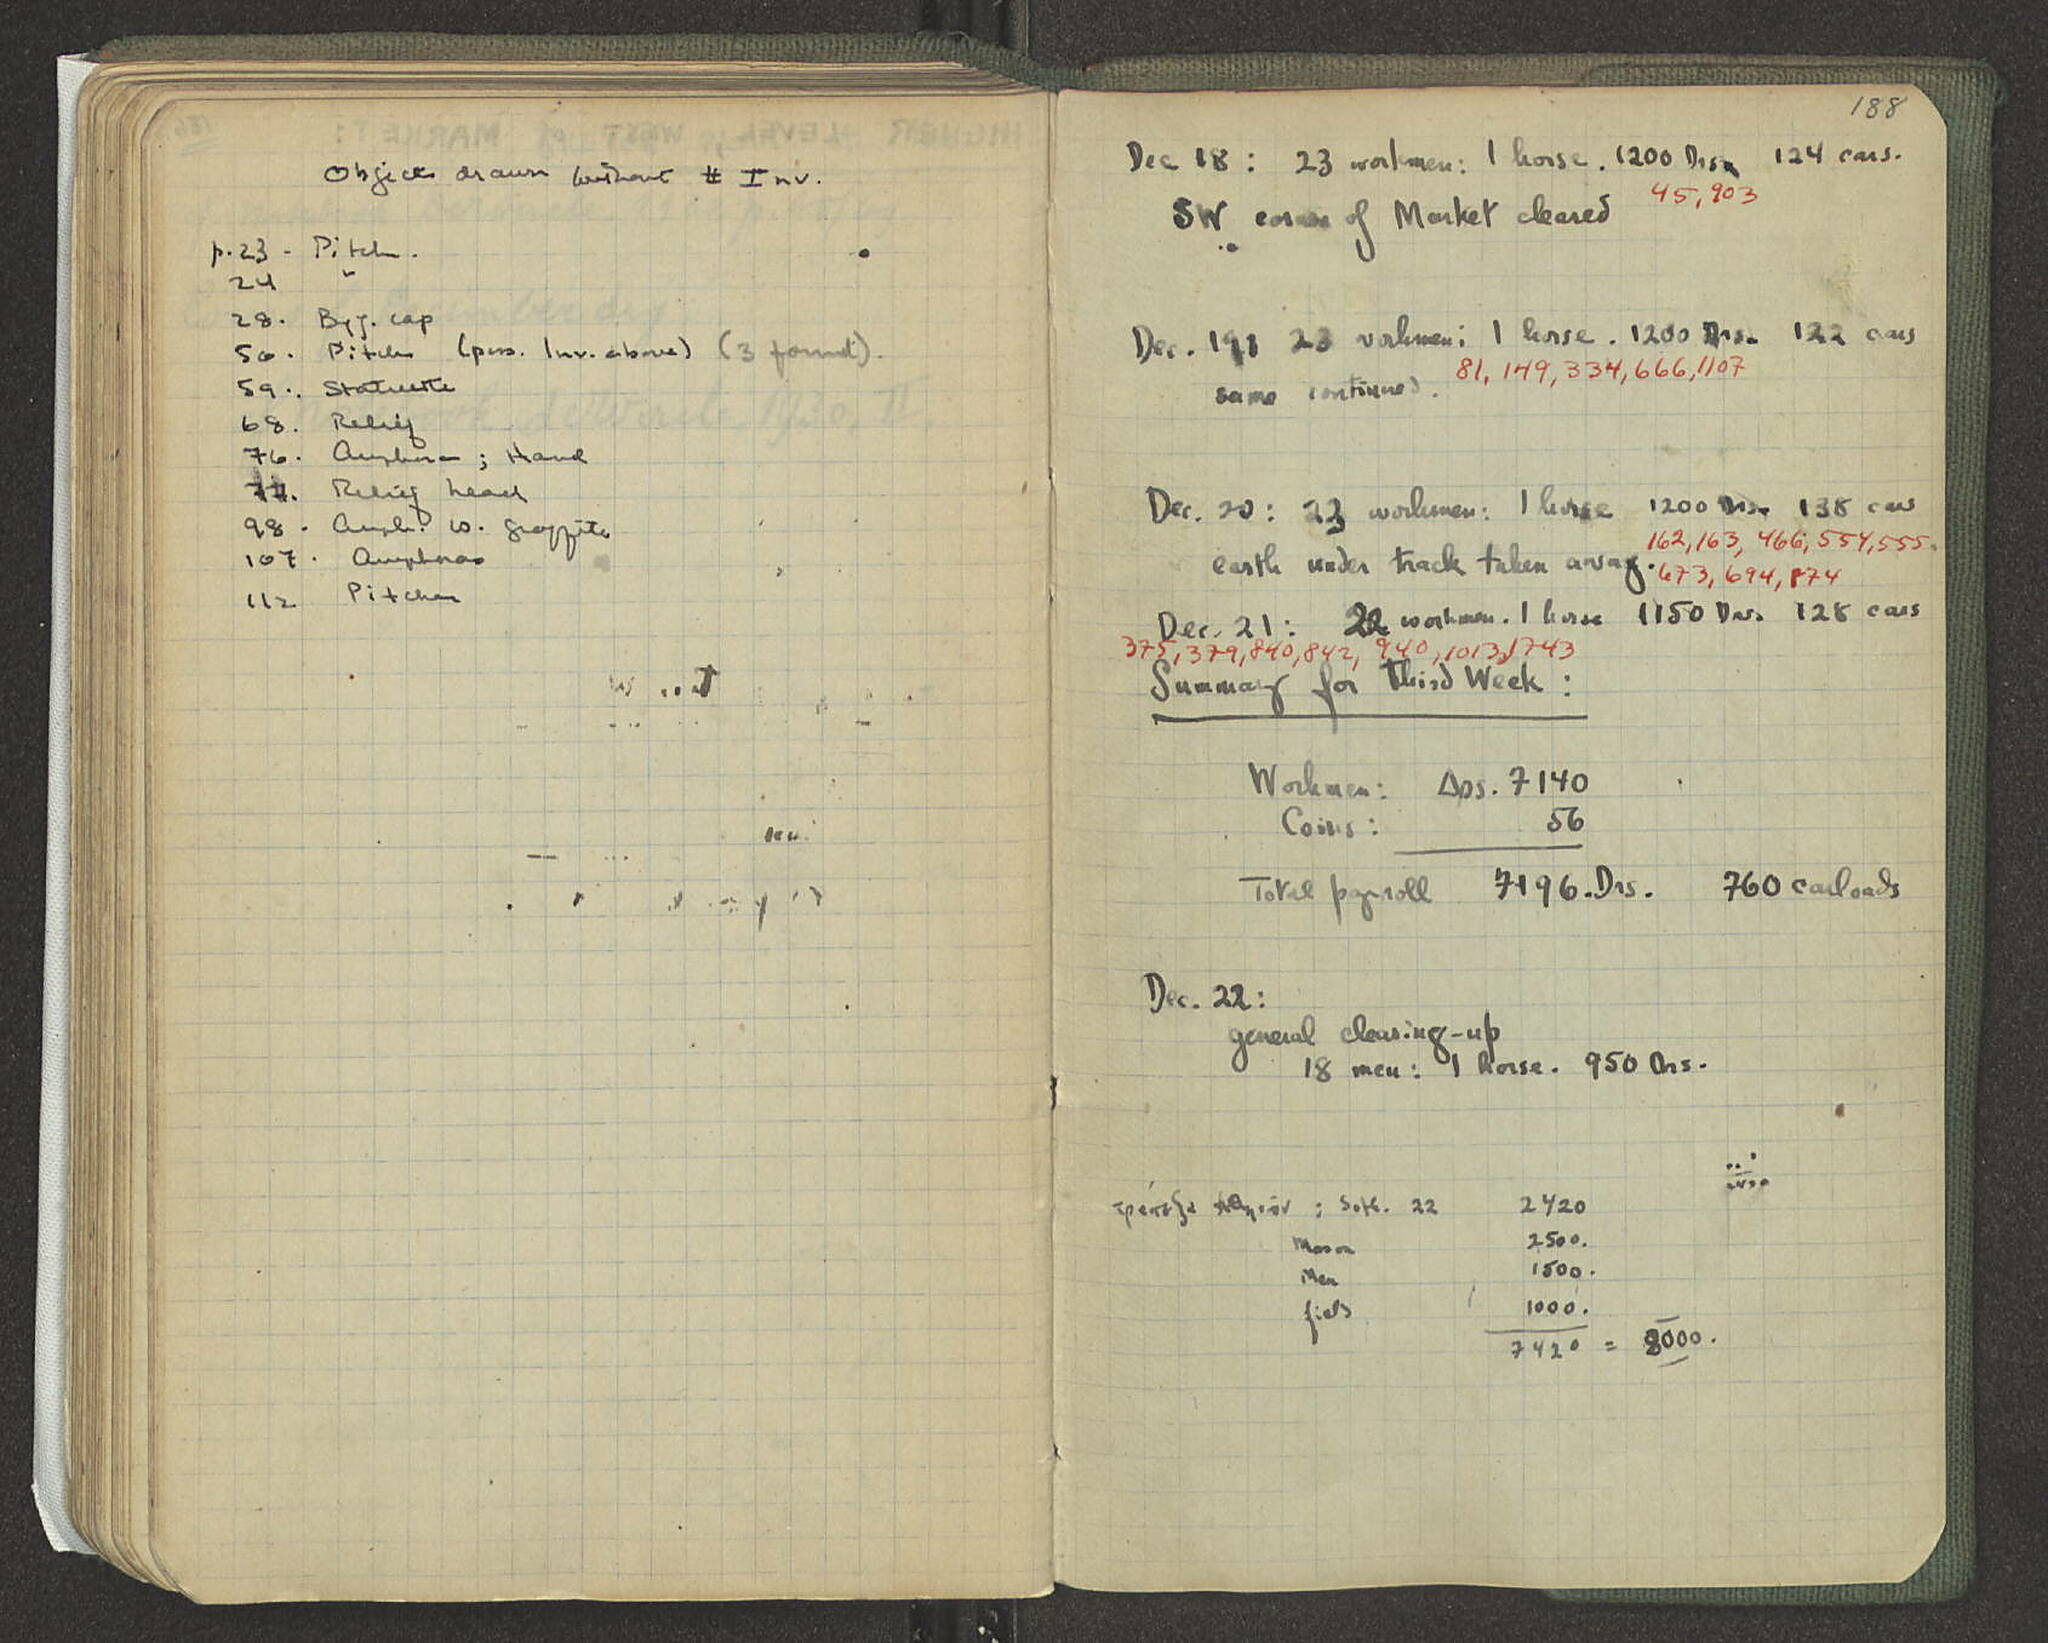 Objects drawn without # Inv.
p. 23 - Pitch.
24 "
28. Byz. cap
50. Pitcher (poss. Inv. above) (3 found).
59. Statuette
68. Relief
76. Amphora ; Hand
77. Relief head
98. Amph. w. graffito
107. Amphoras
112 Pitcher
188
Dec 18 : 23 workmen : 1 horse . 1200 Drs. 124 cars.
45, 903
SW corner of Market cleared
Dec. 19 : 23 workmen : 1 horse . 1200 Drs. 122 cars
81, 149, 334, 666, 1107
same continued.
Dec. 20 : 23 workmen : 1 horse 1200 Drs. 138 cars
162, 163, 466, 554, 555.
earth under track taken away. 673, 694, 874
Dec. 21 : 22 workmen. 1 horse 1150 Drs. 128 cars
375, 379, 840, 842, 940, 1013, 1743
Summary for Third Week :
Workmen : Drs. 7140
Coins : 56
Total payroll 7196. Drs. 760 carloads
Dec. 22 :
general clearing-up
18 men : 1 horse. 950 Drs.
Σοτ. 22 2420
Mason 2500.
Men 1500.
field 1000.
7420 = 8000.